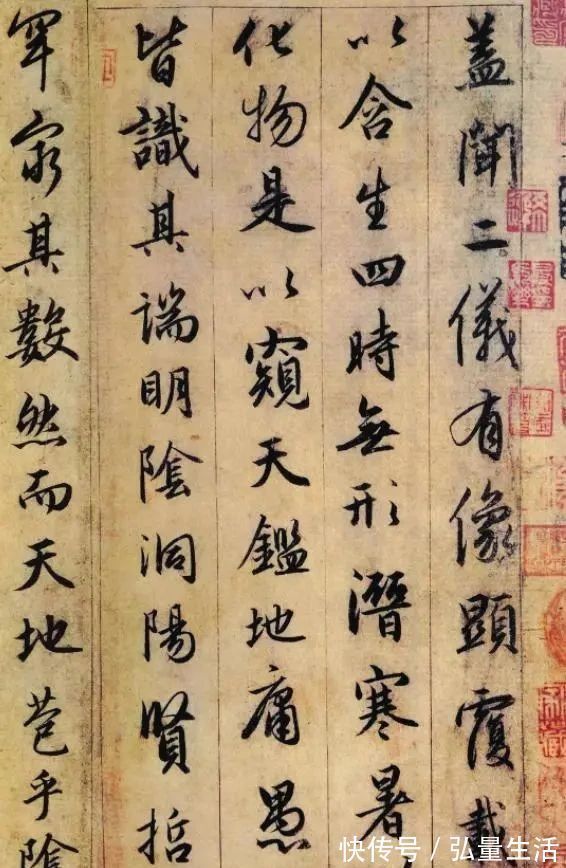 盖聞二儀有像顯覆載
以含生四時無形潛寒暑
化物是以窺天鑑地庸愚
皆識其端明陰洞陽賢哲
罕窮其數然而天地苞乎陰
快传号／弘量生活